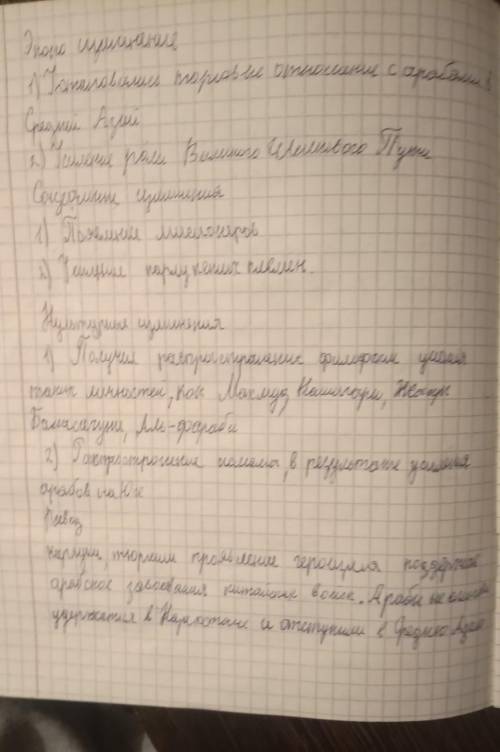 Эконо изменения
1) Установились торговые отношение с арабами в
Средней Азий
2) Усиление роли Великого Шелкового Пути
Социальные изменения
1) Появление миссионеров
2) Усиление карлукских племен.
Культурные изменения
1) Получил распространение философия учения
таких личностей, как Махмуд Кашкари, Жусуп
Баласагуни, Аль-фараби
2) Распространение ислама, в результате усиления
арабов на Юге
Вывод
карлуки, тюргеши проявление героизма поддержав
арабское завоевания китайские войск. Арабы не смогли
удержатся в Казахстане и отступили в Среднею Азию